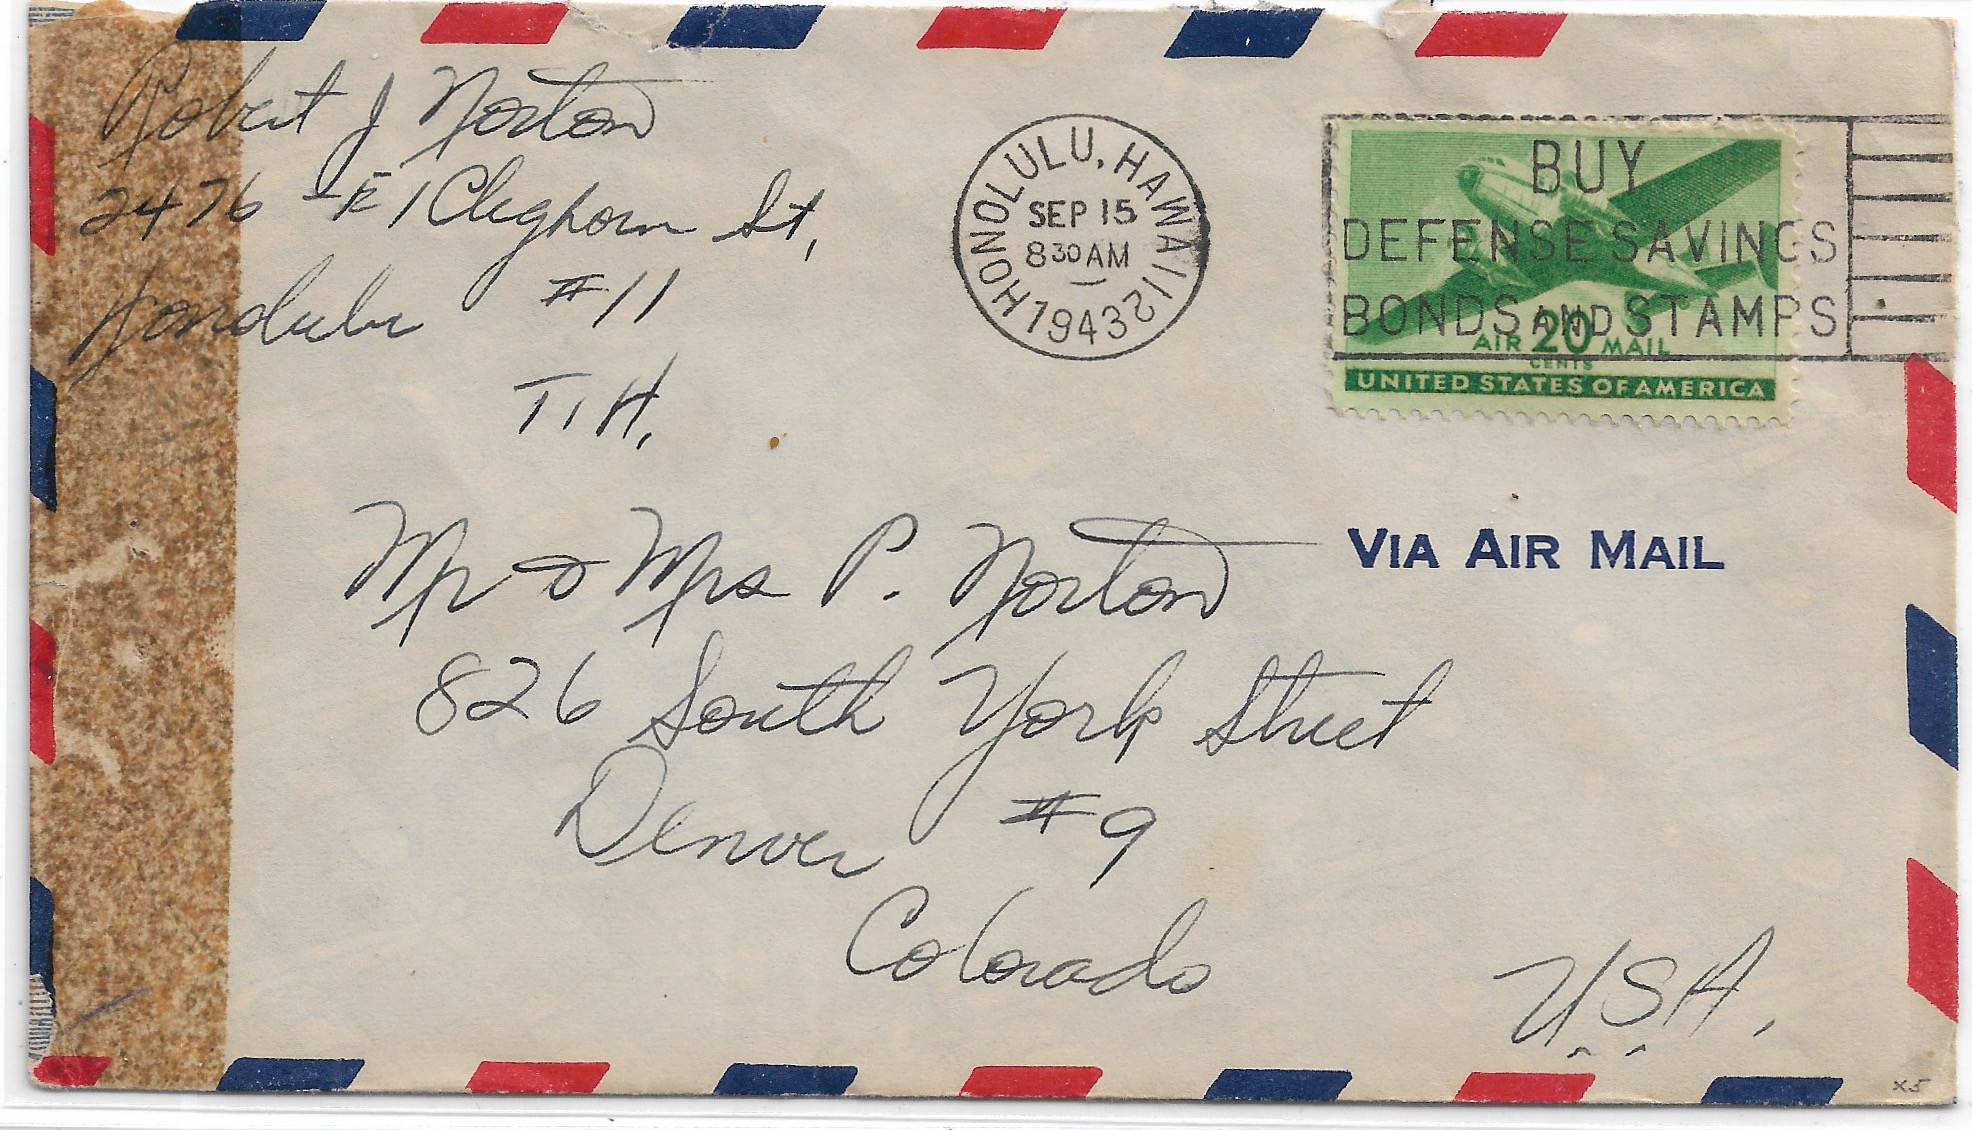 Robert J Norton
2476 - E1 Cleghorn St,
Honolulu #11
T.H.
HONOLULU, HAWAII
SEP 15
8 30 AM
1943
12
BUY
DEFENSE SAVINGS
BONDS AND STAMPS
AIR 20 MAIL
CENTS
UNITED STATES OF AMERICA
VIA AIR MAIL
Mr & Mrs P. Norton
826 South York Street
Denver #9
Colorado
U.S.A.
x5